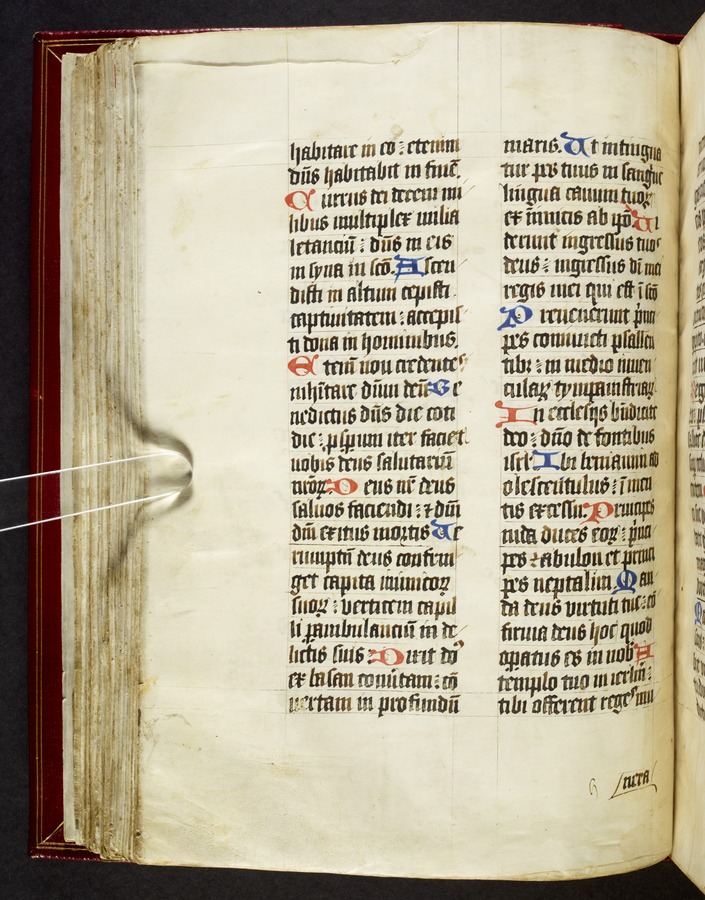 habitare in eo : etenim
dn̄s habitabit in finē.
Currus dei decem mi
libus multiplex milia
letanciū : dn̄s in eis
in syna in sc̄o. Ascen
disti in altum cepisti
captiuitatem : accepis
ti dona in hominibus.
Etenī non credentes
inhītare dn̄m deū Be
nedictus dn̄s die coti
die : ꝓsperum iter faciet
nobis deus salutariū
nr̄oꝝ Deus nr̄ deus
saluos faciendi : ⁊ dn̄i
dn̄i exitus mortis Ue
rumptn̄ deus confrin
get capita inimicoꝝ
suoꝝ : verticem capil
li ꝑambulanciū in de
lictis suis : Dixit do
ex basan conūtam : cō
uertam in profundū
maris. Ut intingua
tur pes tuus in sanguīe
lingua canum tuoꝝ
ex inimicis ab ip̄o. Ui
derunt ingressus tuos
deus : ingressus dī mei
regis mei qui est ī sc̄o
Preuenerunt pͥnci
pes coniuncti psallen
tibꝫ : in medio iuuen
cularꝫ tympanistriaꝝ
In ecclesijs bn̄dicite
deo : dn̄o de fontibus
isrl̄ Ibi beniamin ad
olescentulus : ī men
tis excessu : Principes
iuda duces eoꝝ : pͥnci
pes zabulon et princi
pes neptalim Man
da deus virtuti tue : cō
firma deus hoc quod
oꝑatus es in nob̄ A
templo tuo in ierlm̄ :
tibi offerent reges mu
nera